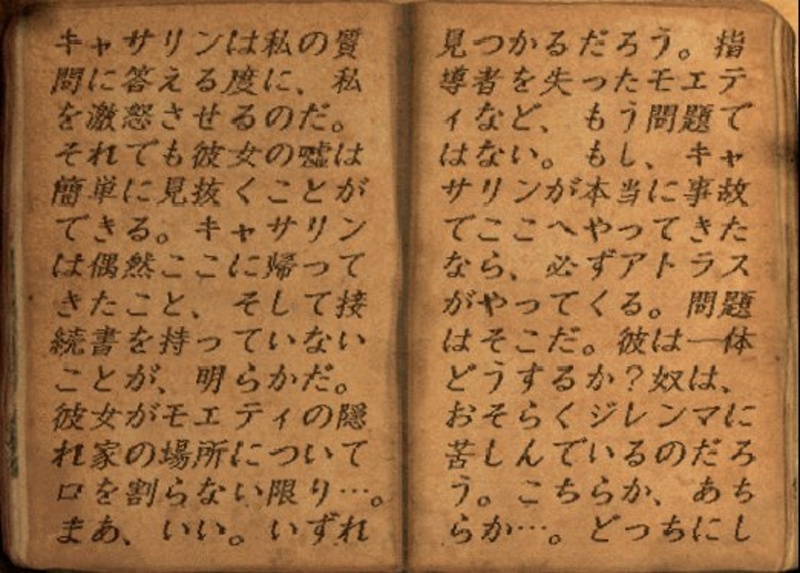 キャサリンは私の質
問に答える度に、私
を激怒させるのだ。
それでも彼女の嘘は
簡単に見抜くことが
できる。キャサリン
は偶然ここに帰って
きたこと、そして接
続書を持っていない
ことが、明らかだ。
彼女がモエティの隠
れ家の場所について
口を割らない限り…。
まあ、いい。いずれ
見つかるだろう。指
導者を失ったモエテ
ィなど、もう問題で
はない。もし、キャ
サリンが本当に事故
でここへやってきた
なら、必ずアトラス
がやってくる。問題
はそこだ。彼は一体
どうするか?奴は、
おそらくジレンマに
苦しんでいるのだろ
う。こちらか、あち
らか…。どっちにし